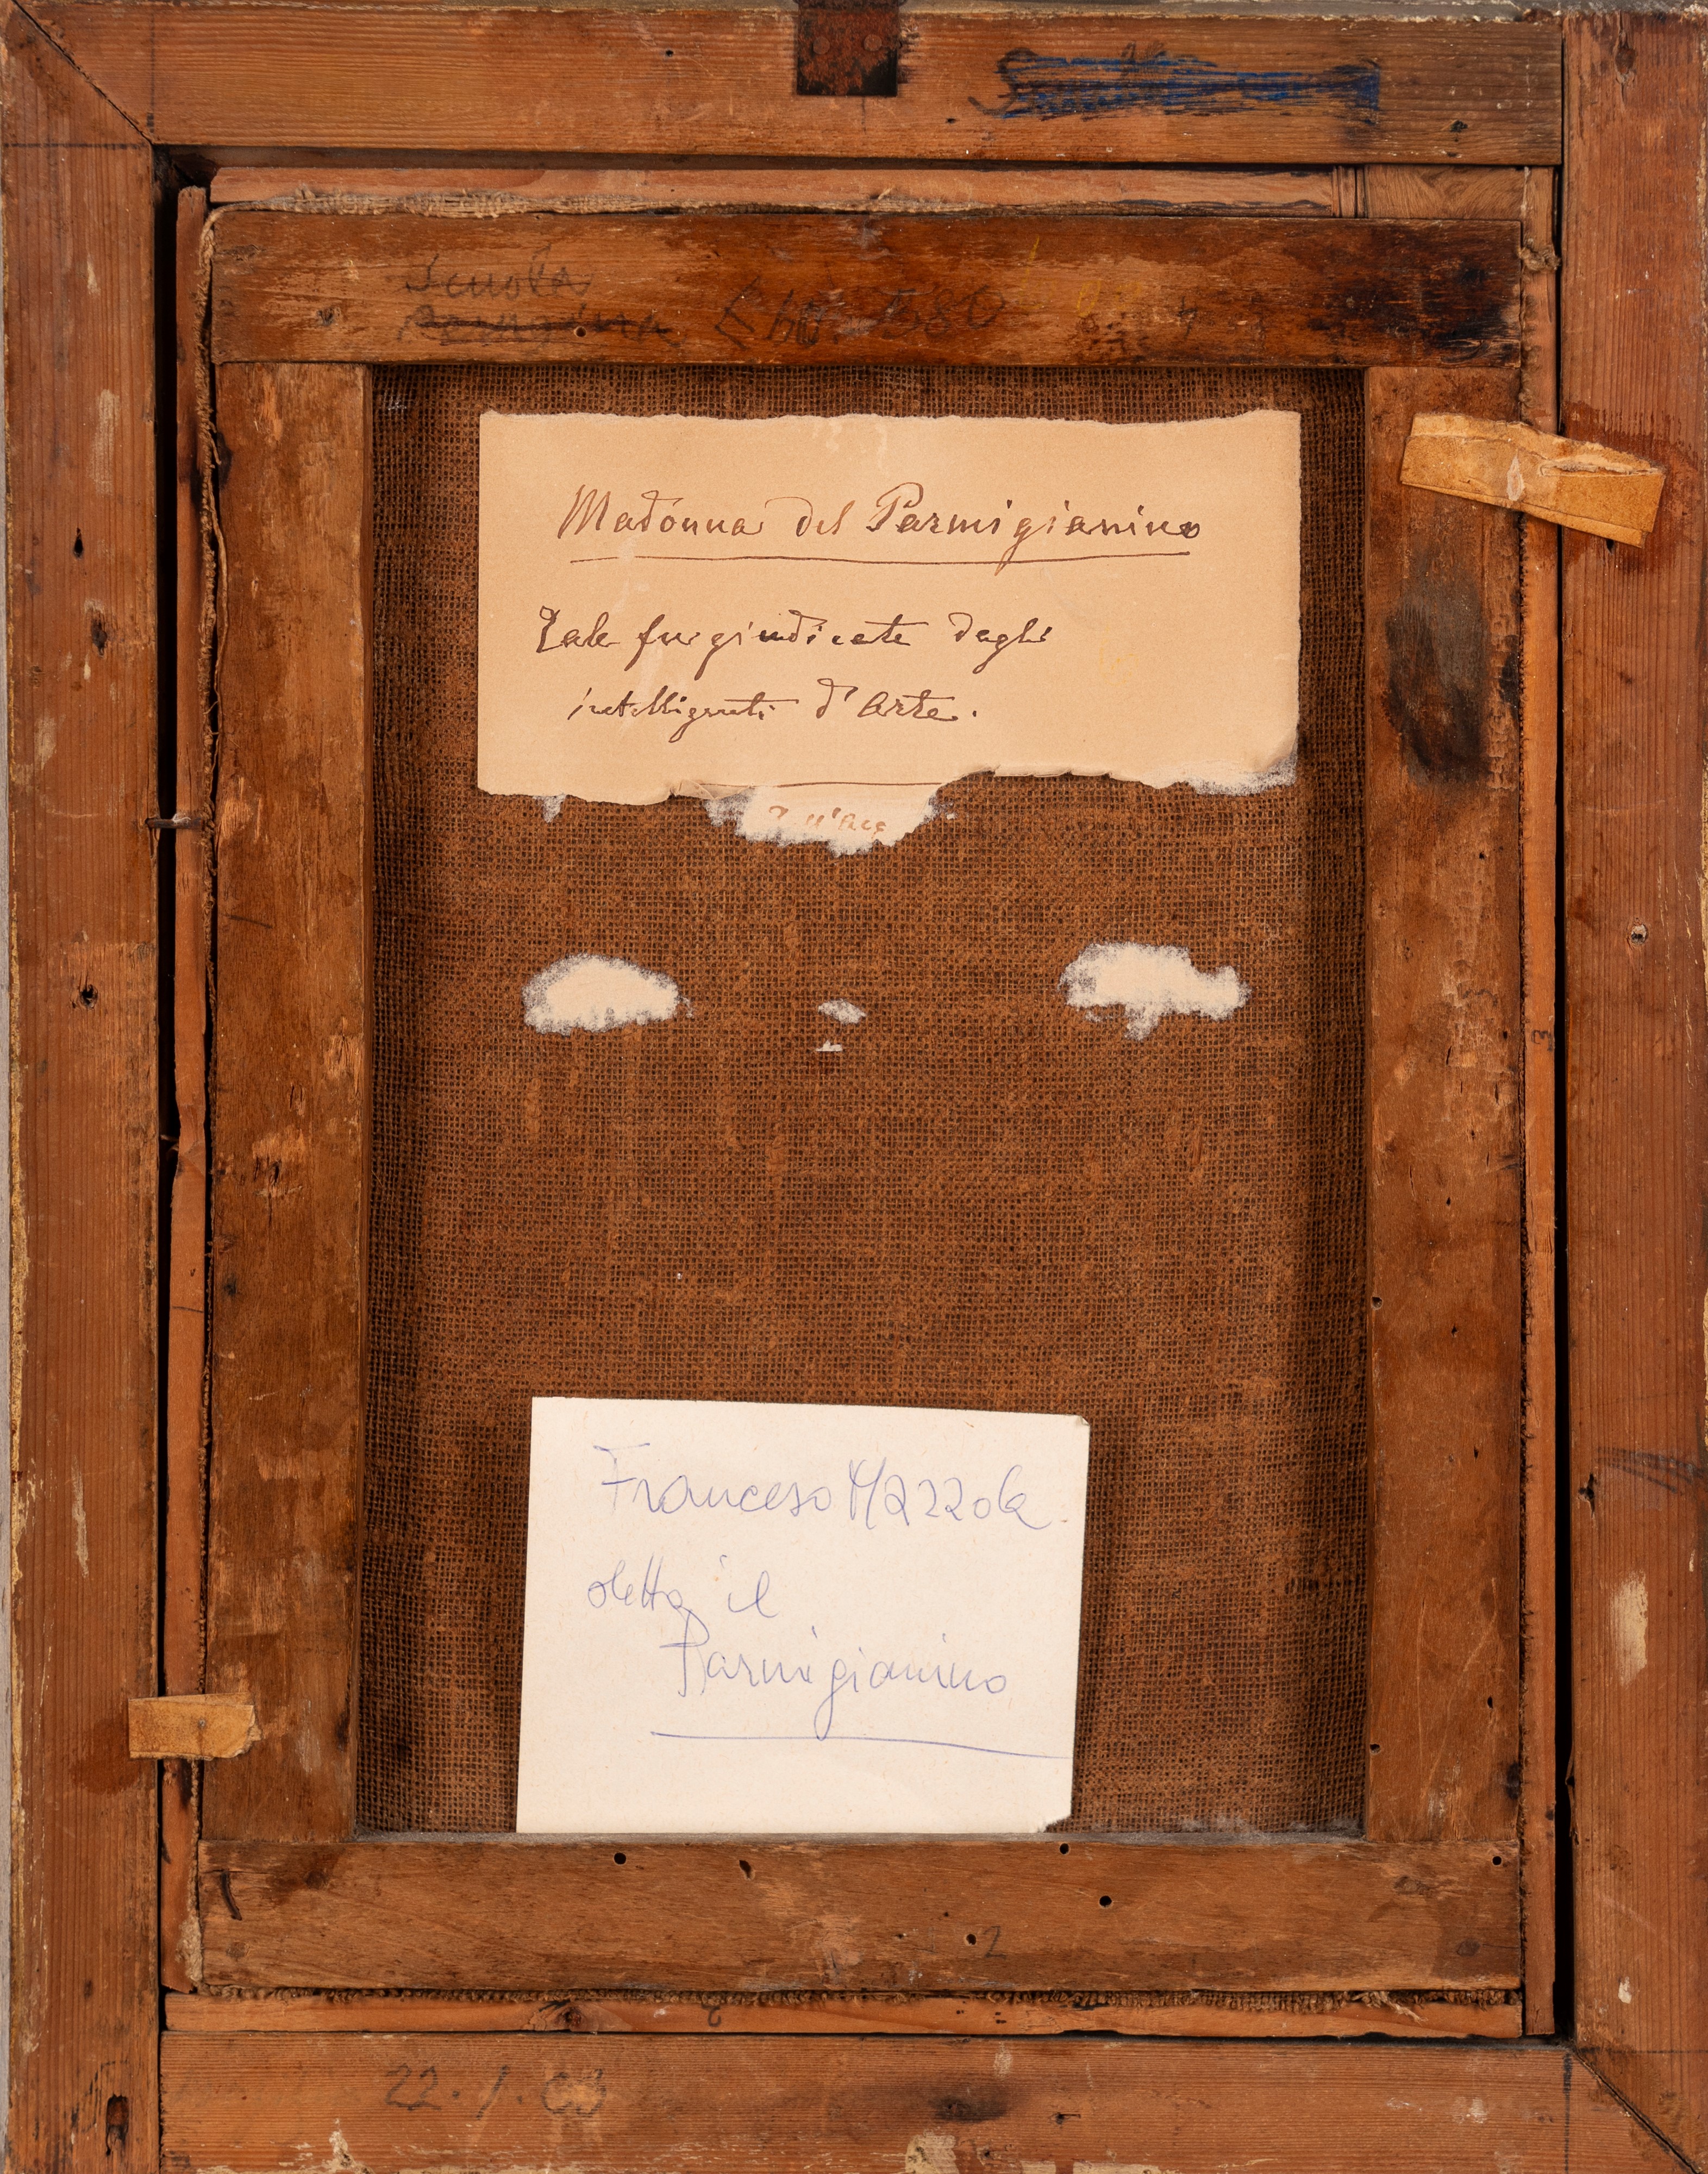 Scuola
Madonna del Parmigianino
Tale fu giudicata dagli
intelligenti d'Arte.
Francesco Mazzola
detto il
Parmigianino
2
22.1.63